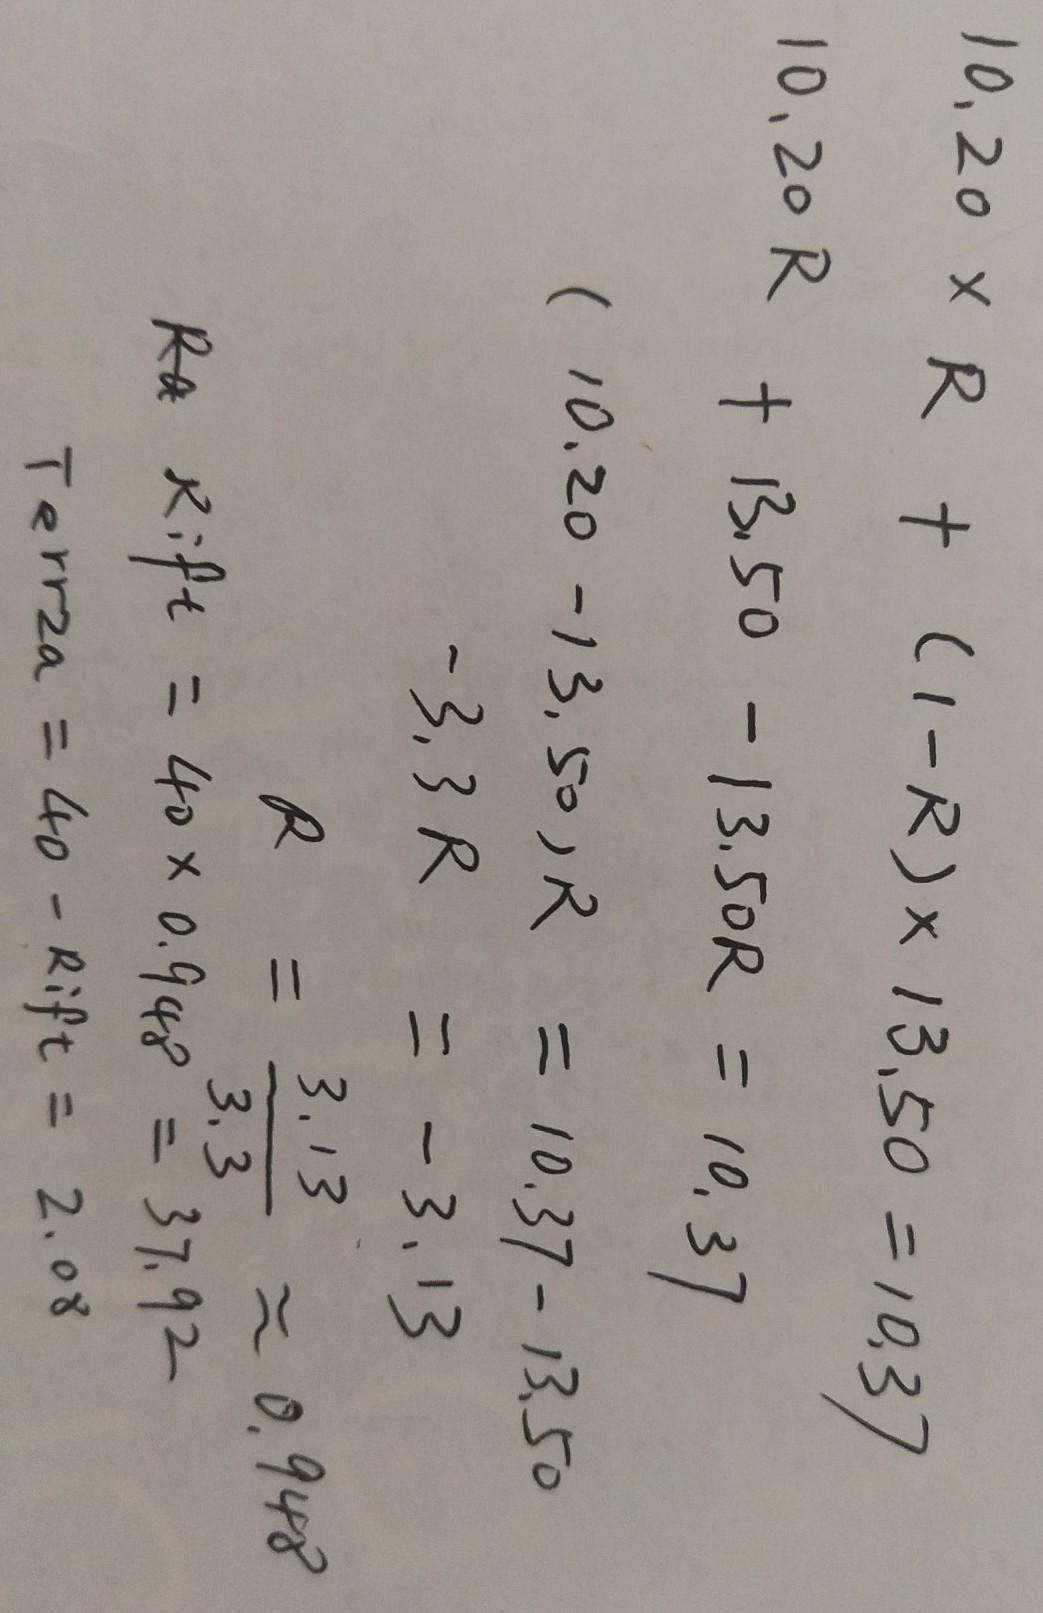 10.20 × R + (1-R) × 13.50 = 10.37
10.20R + 13.50 - 13.50R = 10.37
(10.20 - 13.50)R = 10.37 - 13.50
-3.3R = -3.13
R = 3.13/3.3 ≈ 0.948
Rift = 40 × 0.948 = 37.92
Terrza = 40 - Rift = 2.08